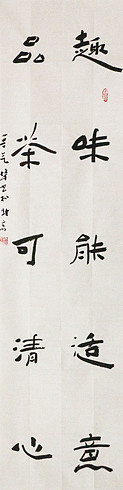 趣味能适意
品茶可清心